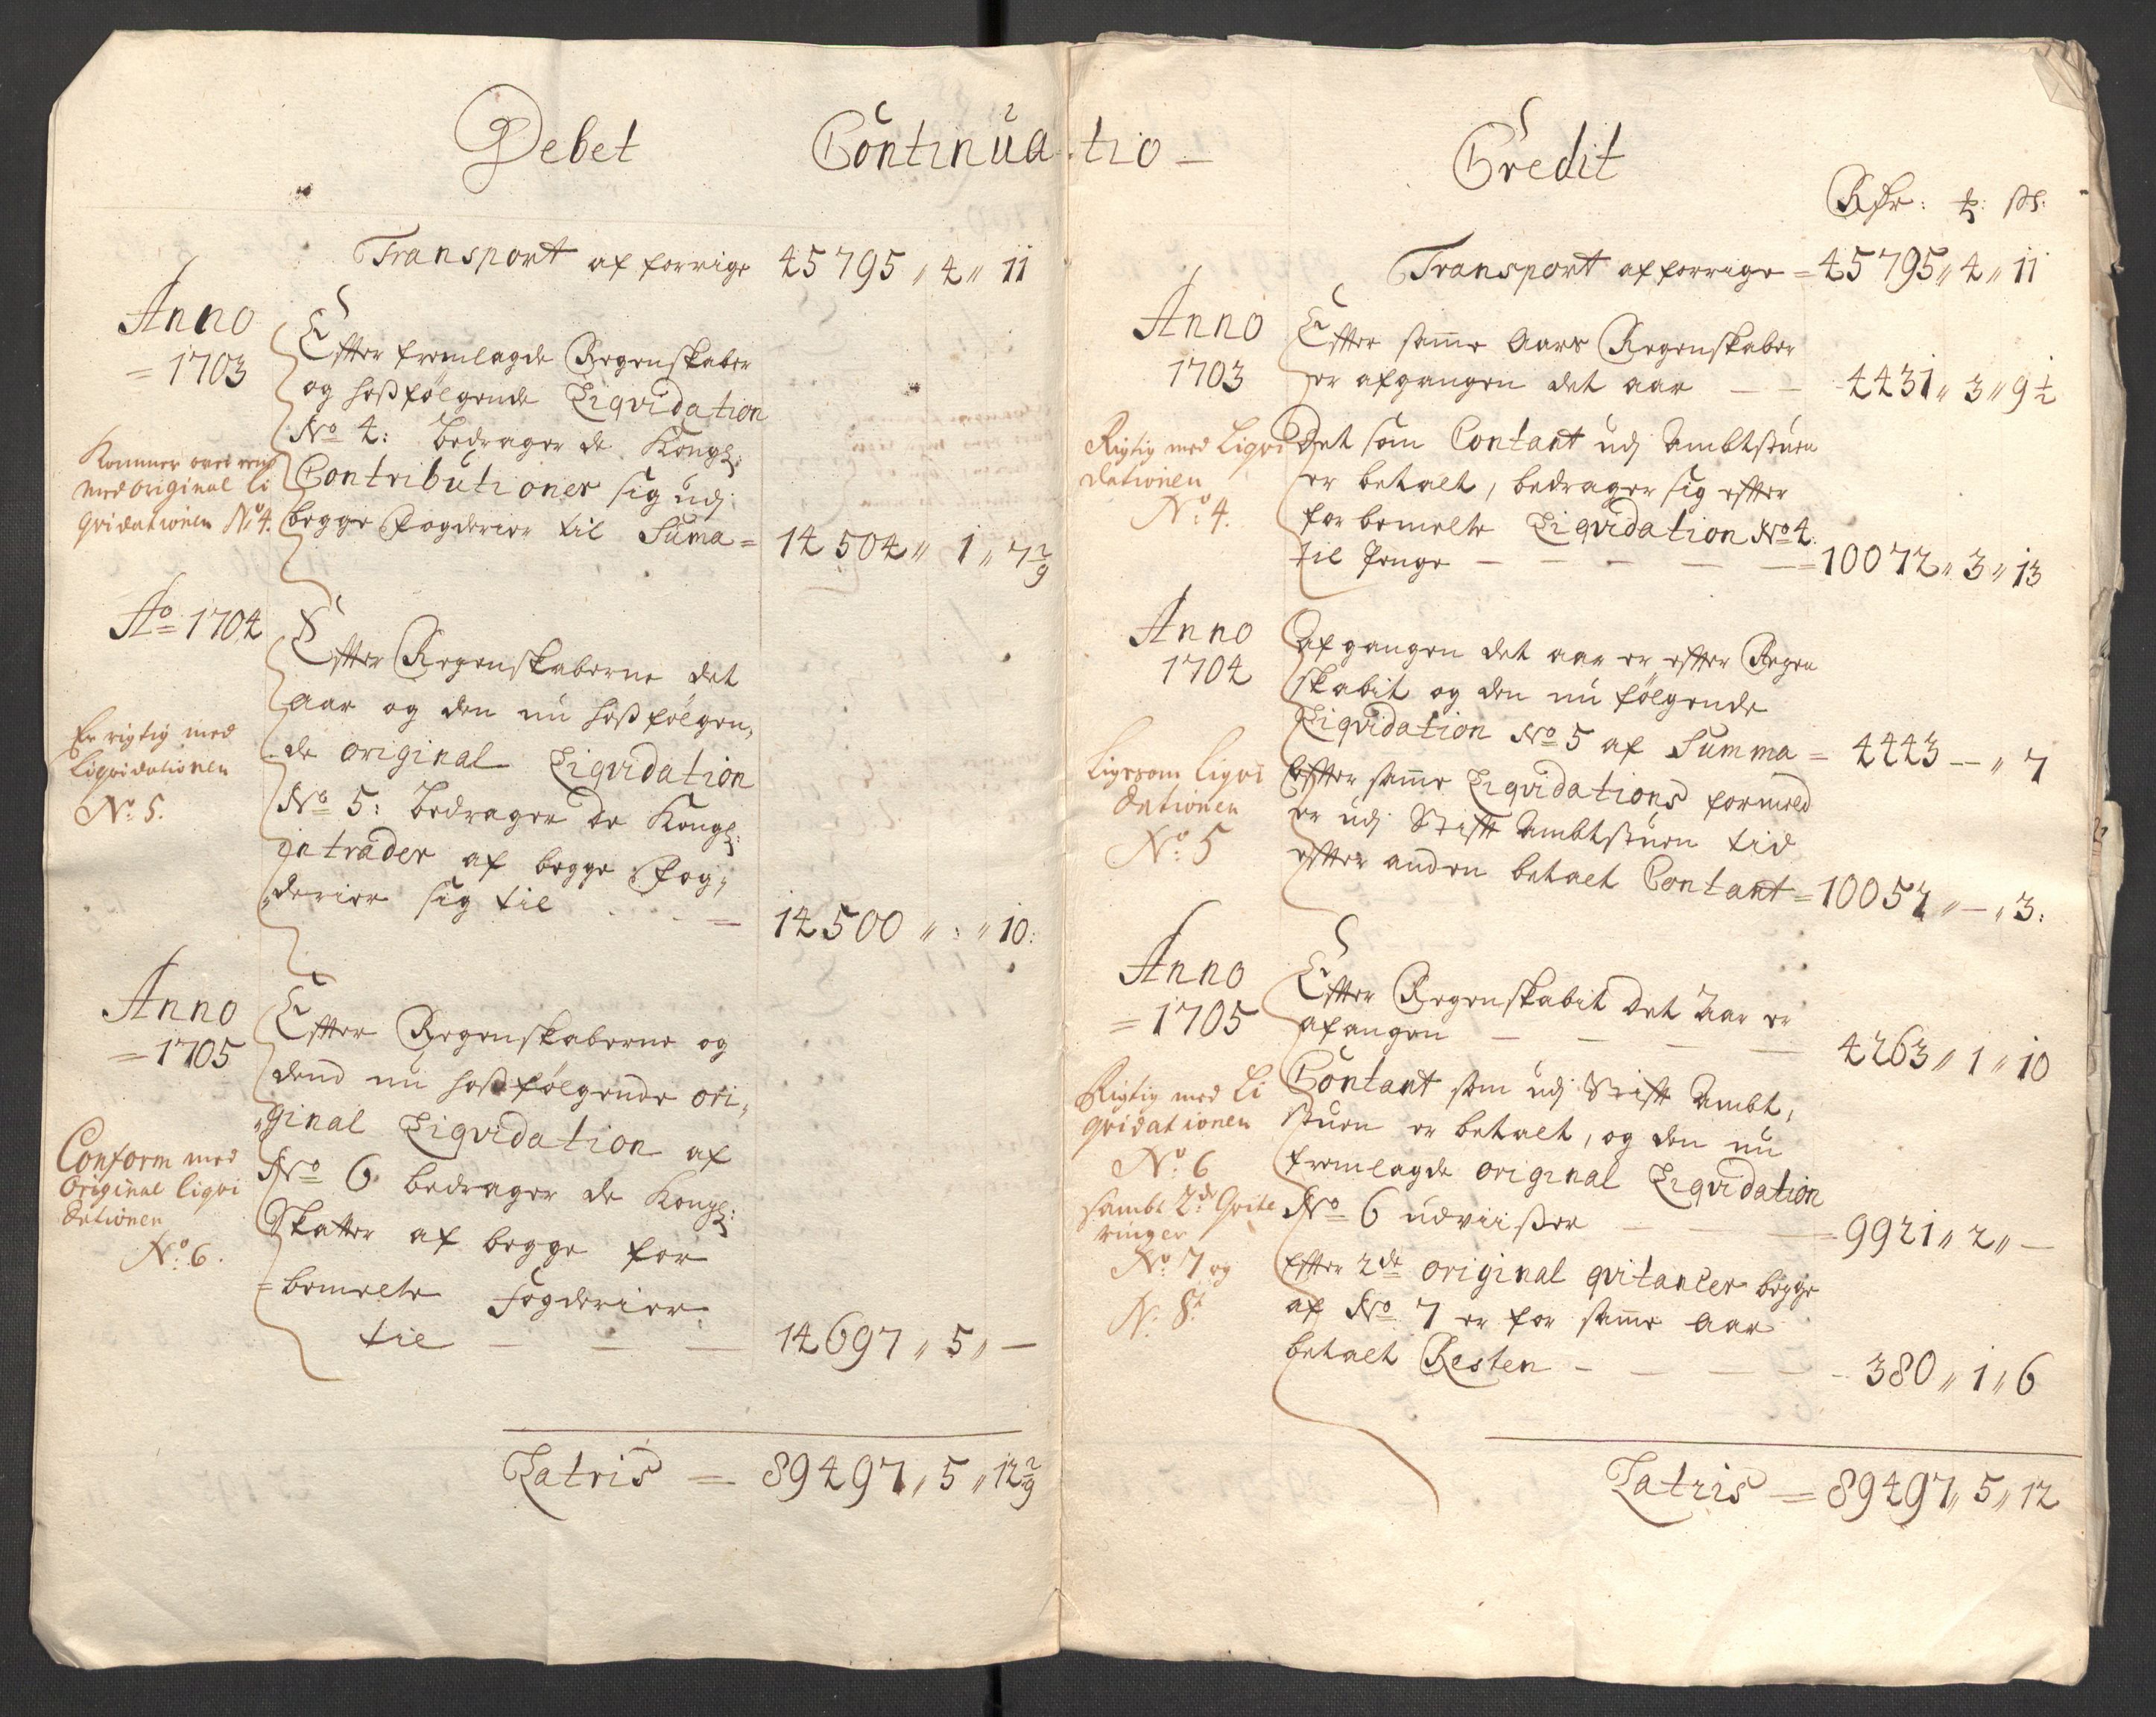 Debet Continua-tio –
Transport af forrige 45795 „ 4 „ 11
Anno
= 1703
Efter fremlagde Regenskaber
og hosfølgende Liqvidation
No 4: bedrager de Kongl:
Contributioner sig udj
begge fogderier til Suma = 14504 „ 1 „ 7 2/9
Kommer over eens
med original li
qvidationen No 4.
Ao 1704
Efter Regenskaberne det
Aar og den nu hosfølgen„
de original Liqvidation
No 5: bedrager de Kongl:
intrader af begge fog„
derier sig til = 14500 „ : „ 10:
Er rigtig med
liqvidationen
No: 5.
Anno
= 1705
Efter Regenskaberne og
dend nu hosfølgende ori„
„ginal Liqvidation af
No 6 bedrager de Kongl:
Skatter af begge for
=bemelte fogderier
til – – – 14697 „ 5 „ –
Conform med
Original liqvi
dationen
No: 6.
Latris = 89497 „ 5 „ 12 2/9
Credit
Rdr: ß:
Transport af forrige = 45795 „ 4 „ 11
Anno
1703
Efter samme Aars Regenskaber
er afgangen det aar – – 4431 „ 3 „ 9 1/2
Rigtig med Liqvi
dationen
No: 4.
Det som Contant udj Ambtstuen
er betalt, bedrager sig efter
forbemelte Liqvidation No 4.
til Penge – – – – = 10072 „ 3 „ 13
Anno
1704
Afgangen det aar er efter Regen
skabit og den nu følgende
Liqvidation No 5 af Summa = 4443 – „ 7
Ligesom liqvi
dationen
No: 5
Efter samme Liqvidations formeld
er udj Stift Ambtstuen tid
efter anden betalt Contant = 10057 „ – „ 3:
Anno
= 1705
Efter Regenskabit det Aar er
afangen – – – – 4263 „ 1 „ 10
Rigtig med Li
qvidationen
No: 6
sambt 2de Qvite
ringer
No: 7 og
No: 8.
Contant som udj Stift Ambt„
stuen er betalt, og den nu
fremlagde original Liqvidation
No 6 udviisser – – = 9921 „ 2 „ –
Efter 2de original qvitancer begge
af No 7 er for samme Aar
betalt Resten – – – – – 380 „ 1 „ 6
Latris = 89497 „ 5 „ 12